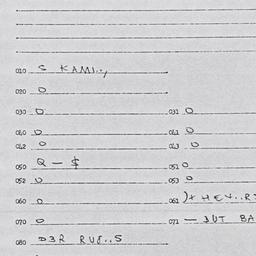 010 S KAMI..,
020 O
030 O 031 O
040 O 041 O
042 O 043 O
050 Q - $ 051 O
052 O 053 O
060 O 061
070 O 071 - JUT BA
080 D3R RUE..S